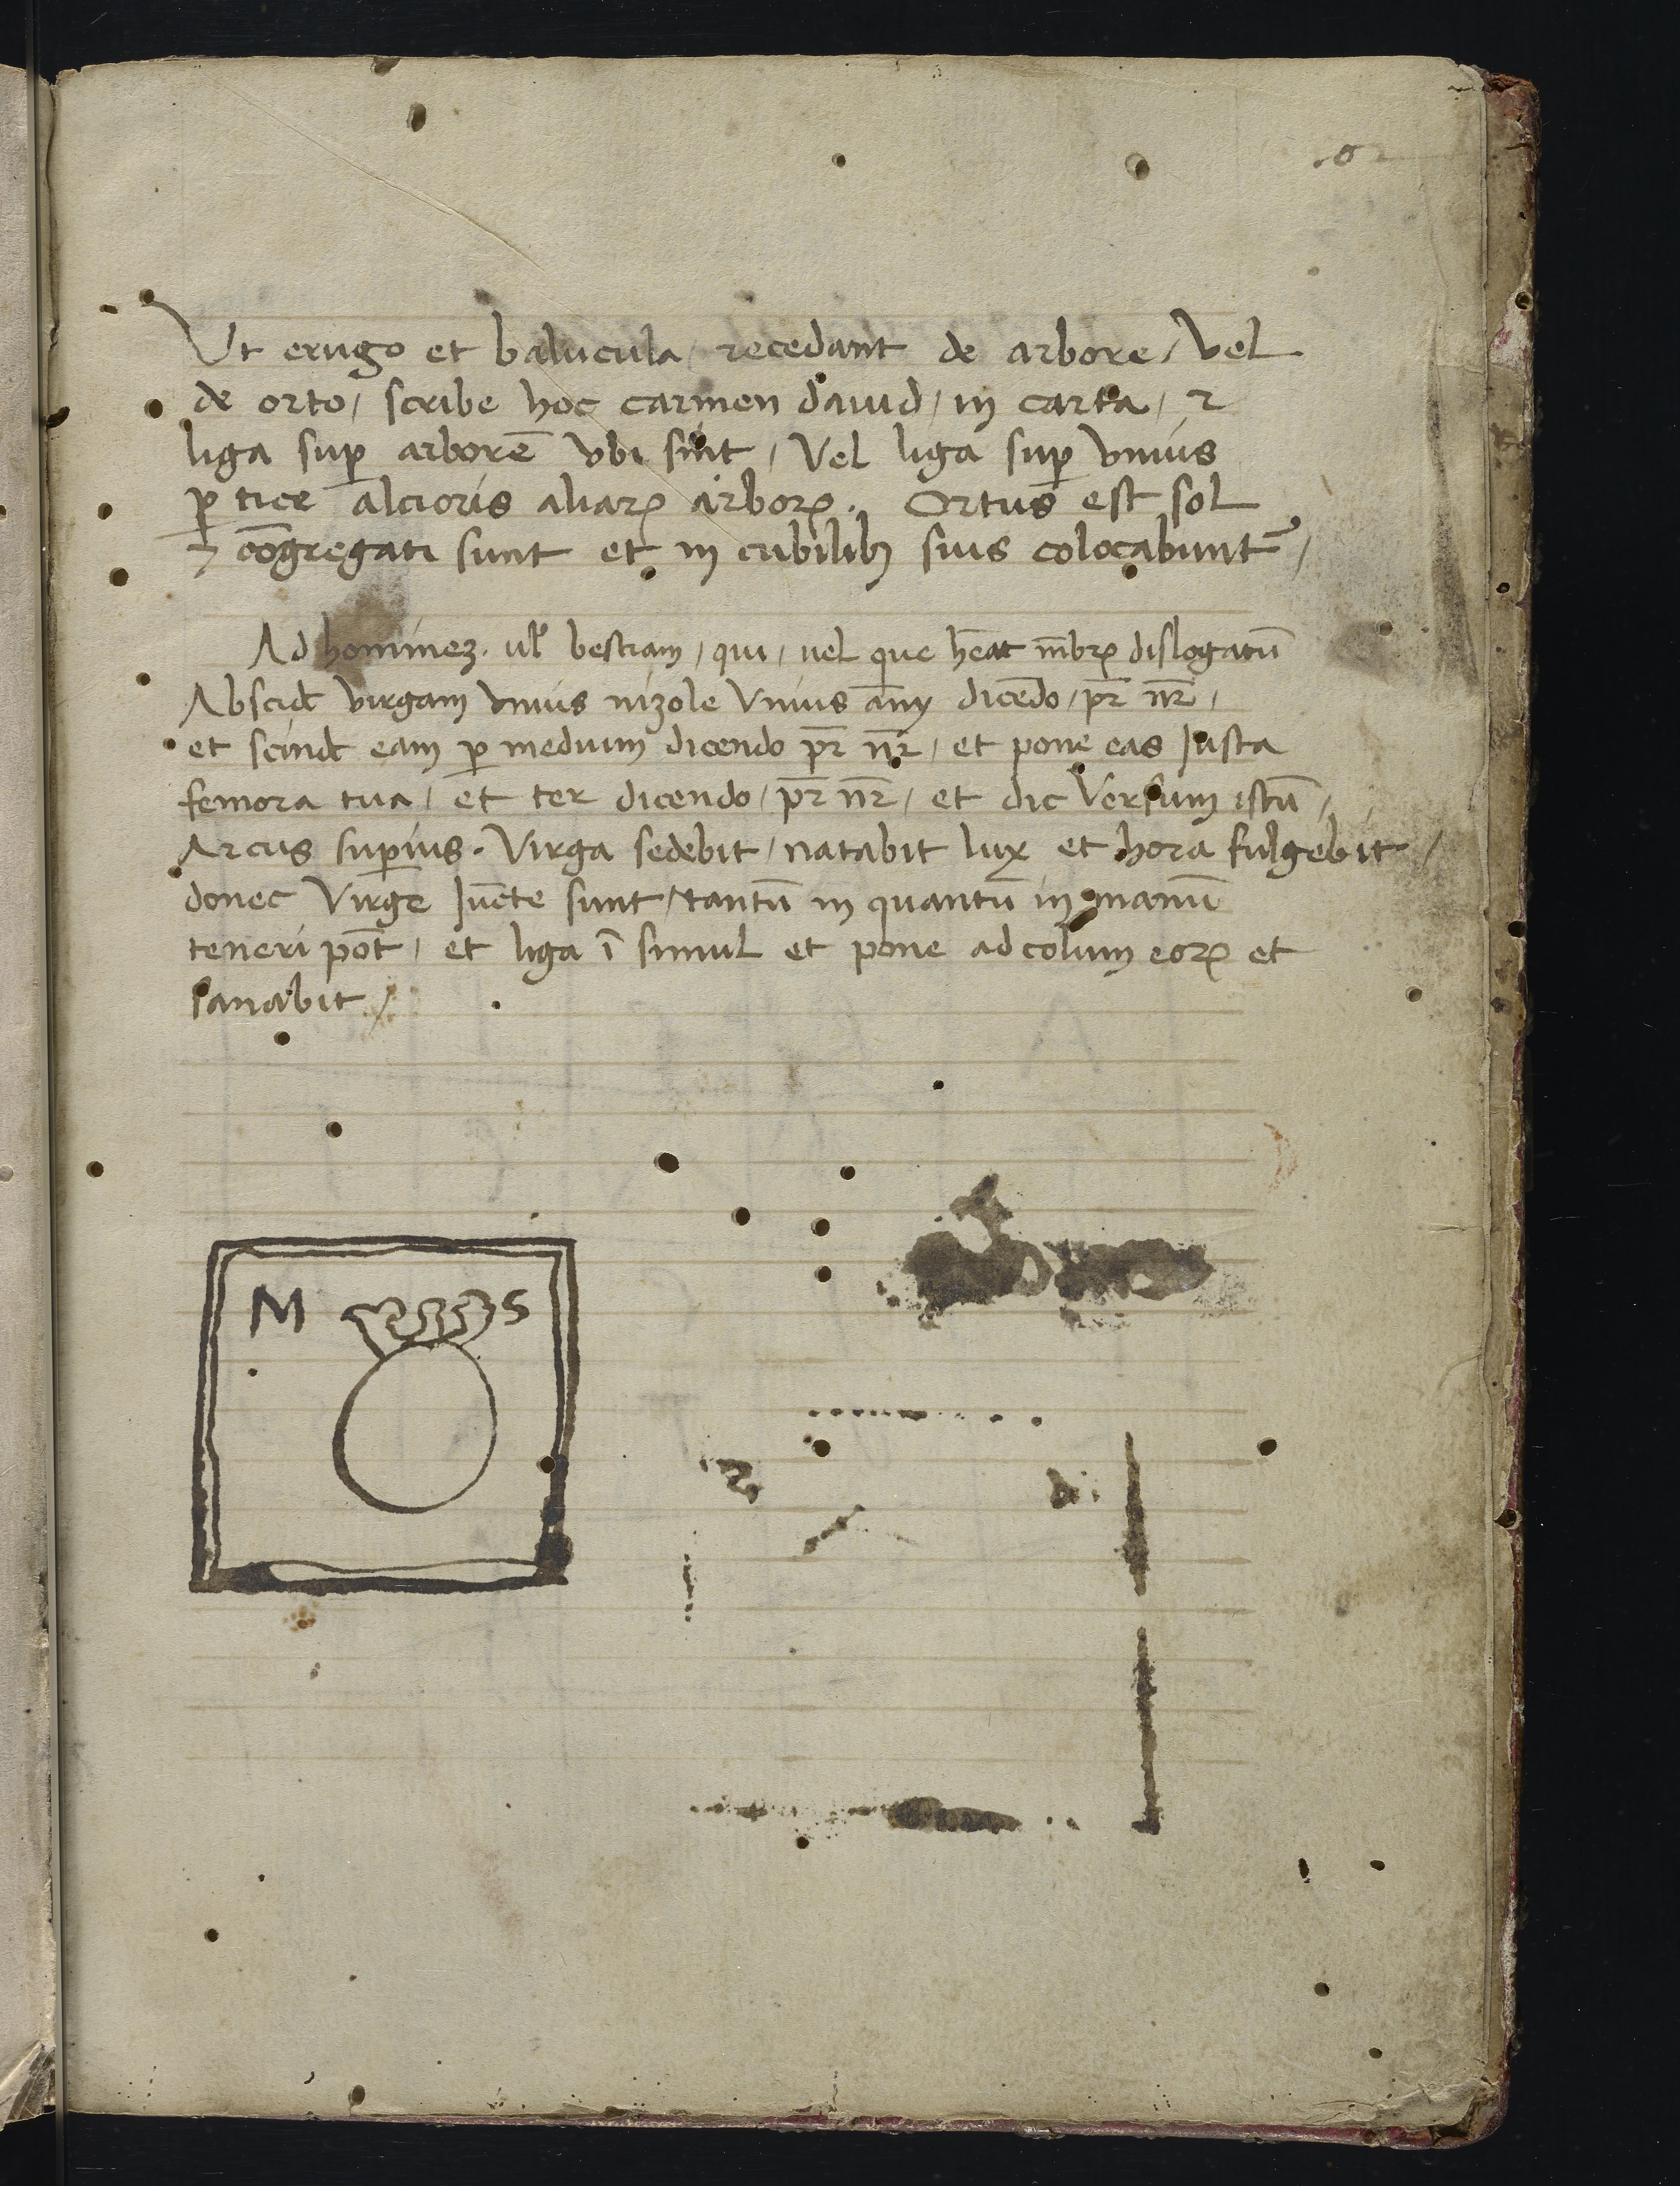 Vt erugo et balucula / recedant de arbore / vel
de orto / scribe hoc carmen dauid / in carta / ⁊
liga sup̱ arborē vbi sint / Vel liga sup̱ vnius
p̱tice alcioris aliaꝝ arboꝝ. Ortus est sol
⁊ cōgregati sunt et in cubilibꝫ suis colocabunt᷑ /
Ad hominez. ul̉ bestiam / qui / uel que hēat mēbꝝ dislogatū
Abscid̄ virgam vnius nizole vnius anny dicēdo / pr̄ nr̄ /
et scind̄ eam p̱ medium dicendo pr̄ nr̄ / et pone eas Iusta
femora tua / et ter dicendo / pr̄ nr̄ / et dic Versum istū /
Arcus sup̱ius. Virga sedebit / natabit lux et hora fulgebit /
donec Virge Iūcte sunt / tantū in quantū in manū
teneri pōt / et liga ī simul et pone ad colum eoꝝ et
sanabit /
M S